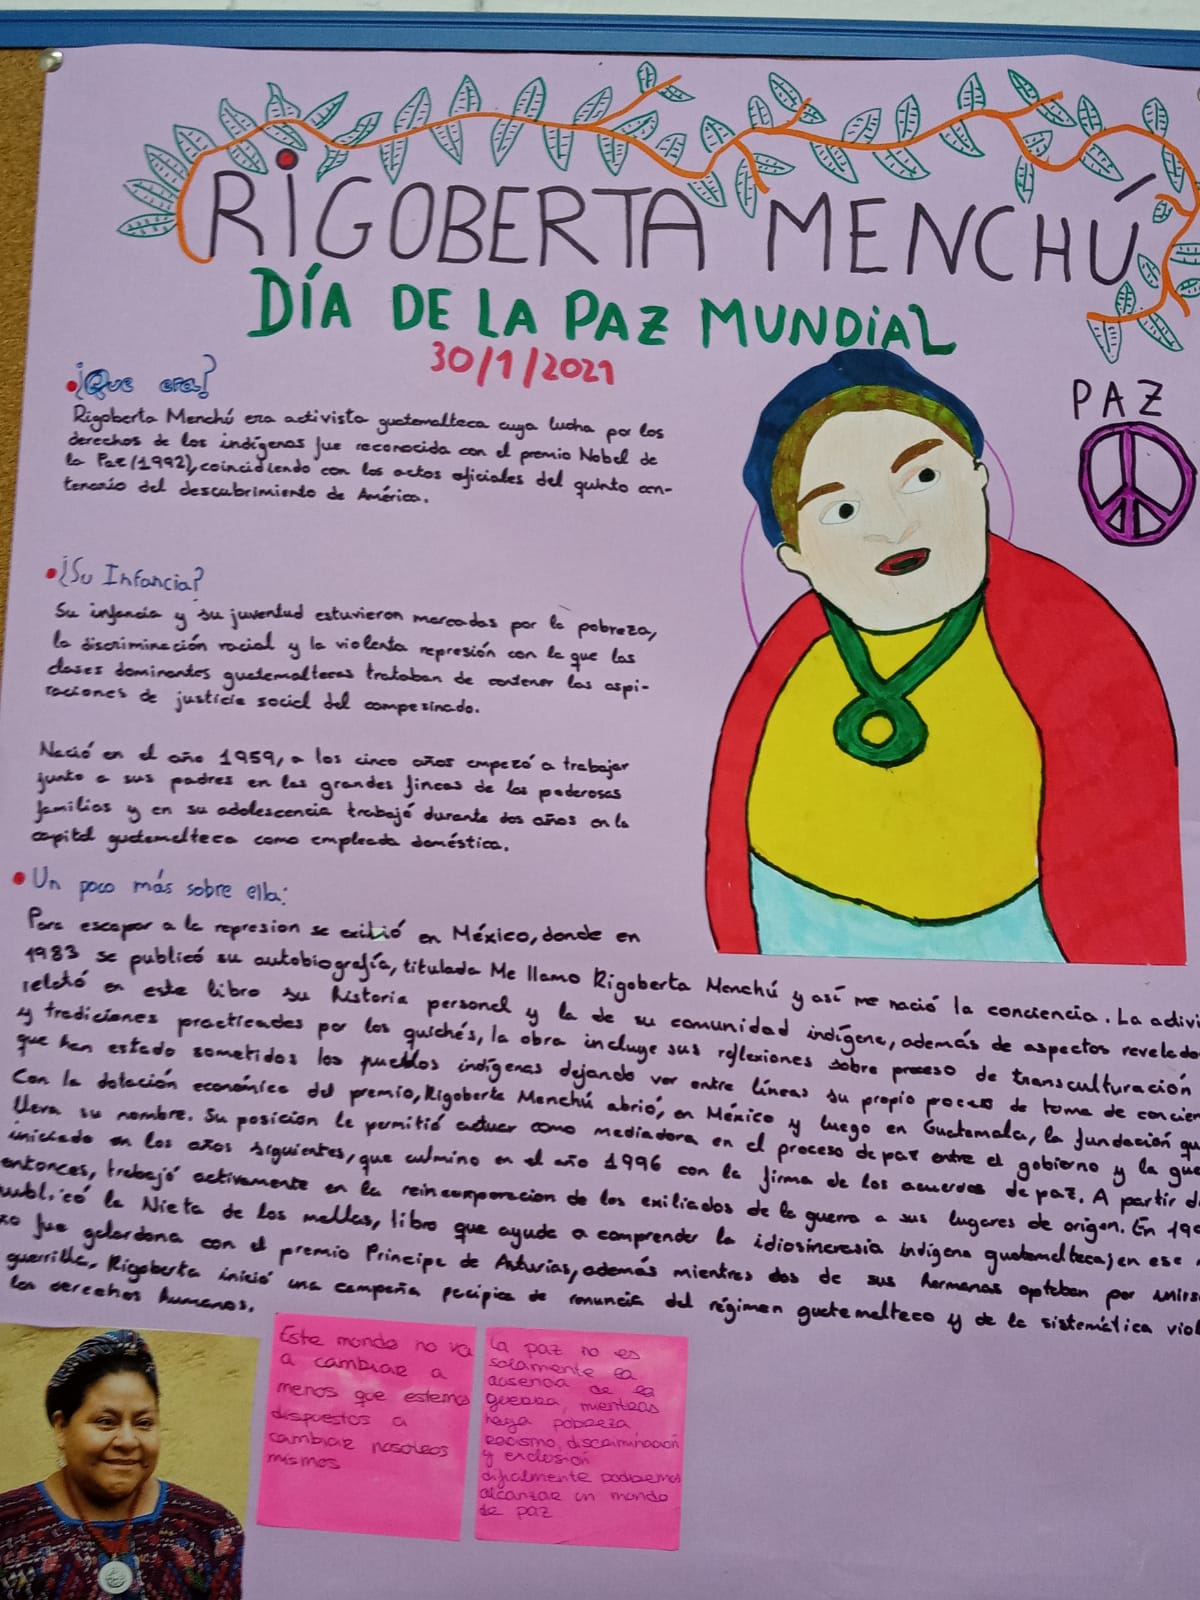 RIGOBERTA MENCHÚ
DÍA DE LA PAZ MUNDIAL
30/1/2021
PAZ
¿Que era?
Rigoberta Menchú era activista guatemalteca cuya lucha por los
derechos de los indígenas fue reconocida con el premio Nobel de
la Paz (1992), coincidiendo con los actos oficiales del quinto cen-
tenario del descubrimiento de América.
¿Su Infancia?
Su infancia y su juventud estuvieron marcadas por la pobreza,
la discriminación racial y la violenta represión con la que las
clases dominantes guatemaltecas trataban de contener las aspi-
raciones de justicia social del campesinado.
Nació en el año 1959, a los cinco años empezó a trabajar
junto a sus padres en las grandes fincas de las poderosas
familias y en su adolescencia trabajó durante dos años en la
capital guatemalteca como empleada doméstica.
Un poco más sobre ella:
Para escapar a la represion se exilió en México, donde en
1983 se publicó su autobiografía, titulada Me llamo Rigoberta Menchú y así me nació la conciencia. La activi
relató en este libro su historia personal y la de su comunidad indígena, además de aspectos revelado
y tradiciones practicadas por los quichés, la obra incluye sus reflexiones sobre proceso de transculturación
que han estado sometidos los pueblos indígenas dejando ver entre líneas su propio proceso de toma de concien
Con la dotación económica del premio, Rigoberta Menchú abrió, en México y luego en Guatemala, la fundación qu
lleva su nombre. Su posición le permitió actuar como mediadora en el proceso de paz entre el gobierno y la gue
iniciado en los años siguientes, que culmino en el año 1996 con la firma de los acuerdos de paz. A partir d
entonces, trabajó activamente en la reincorporacion de los exiliados de la guerra a sus lugares de origen. En 199
publicó la Nieta de los mallas, libro que ayuda a comprender la idiosincresia indígena guatemalteca; en ese
fue galardona con el premio Principe de Asturias, además mientras dos de sus hermanas optaban por unirs
guerrilla, Rigoberta inició una campaña pacipica de renuncia del régimen guatemalteco y de la sistemática viol
los derechos humanos.
Este mundo no va
a cambiar a
menos que estemos
dispuestos a
cambiar nosotros
mismos
La paz no es
solamente la
ausencia de la
guerra, mientras
haya pobreza
racismo, discriminación
y exclusión
dificalmente podremos
alcanzar un mundo
de paz